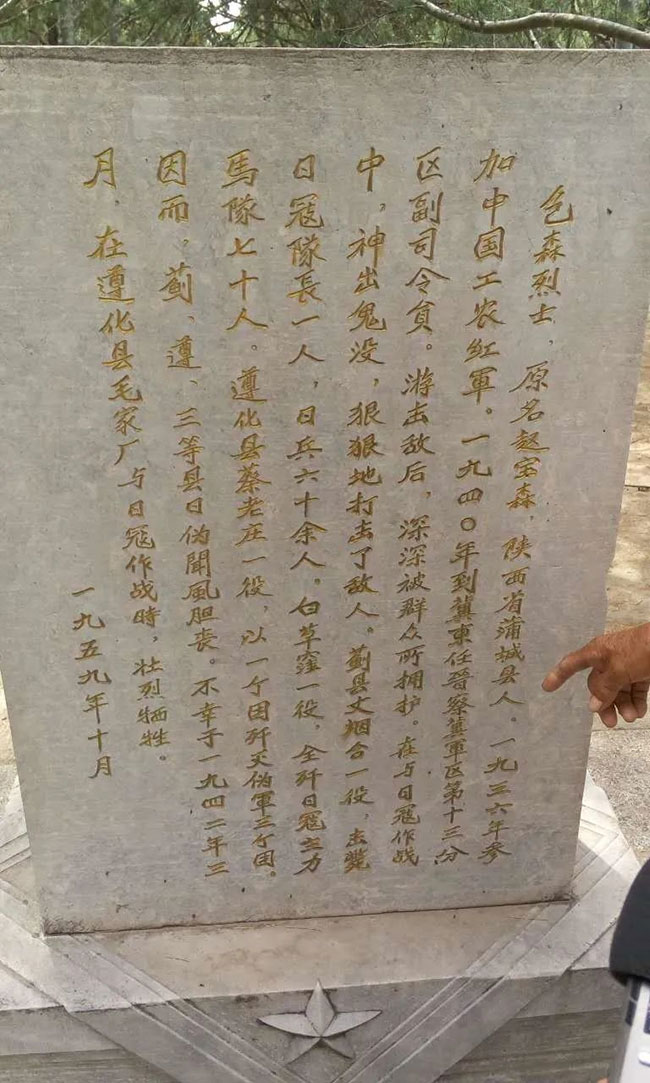 包森烈士，原名赵宝森，陕西省蒲城县人。一九三六年参
加中国工农红軍。一九四〇年到冀東任晉察冀軍区第十三分
区副司令員。游击敌后，深深被群众所拥护。在与日寇作战
中，神出鬼没，狠狠地打击了敌人。蓟县丈烟台一役，击斃
日寇隊長一人，日兵六十余人。白草窪一役，全歼日寇主力
馬隊七十人。遵化县蔡老庄一役，以一个团歼灭伪軍三个团。
因而，蓟、遵、三等县日伪聞風胆丧。不幸于一九四二年三
月，在遵化县毛家厂与日寇作战時，壮烈牺牲。
一九五九年十月